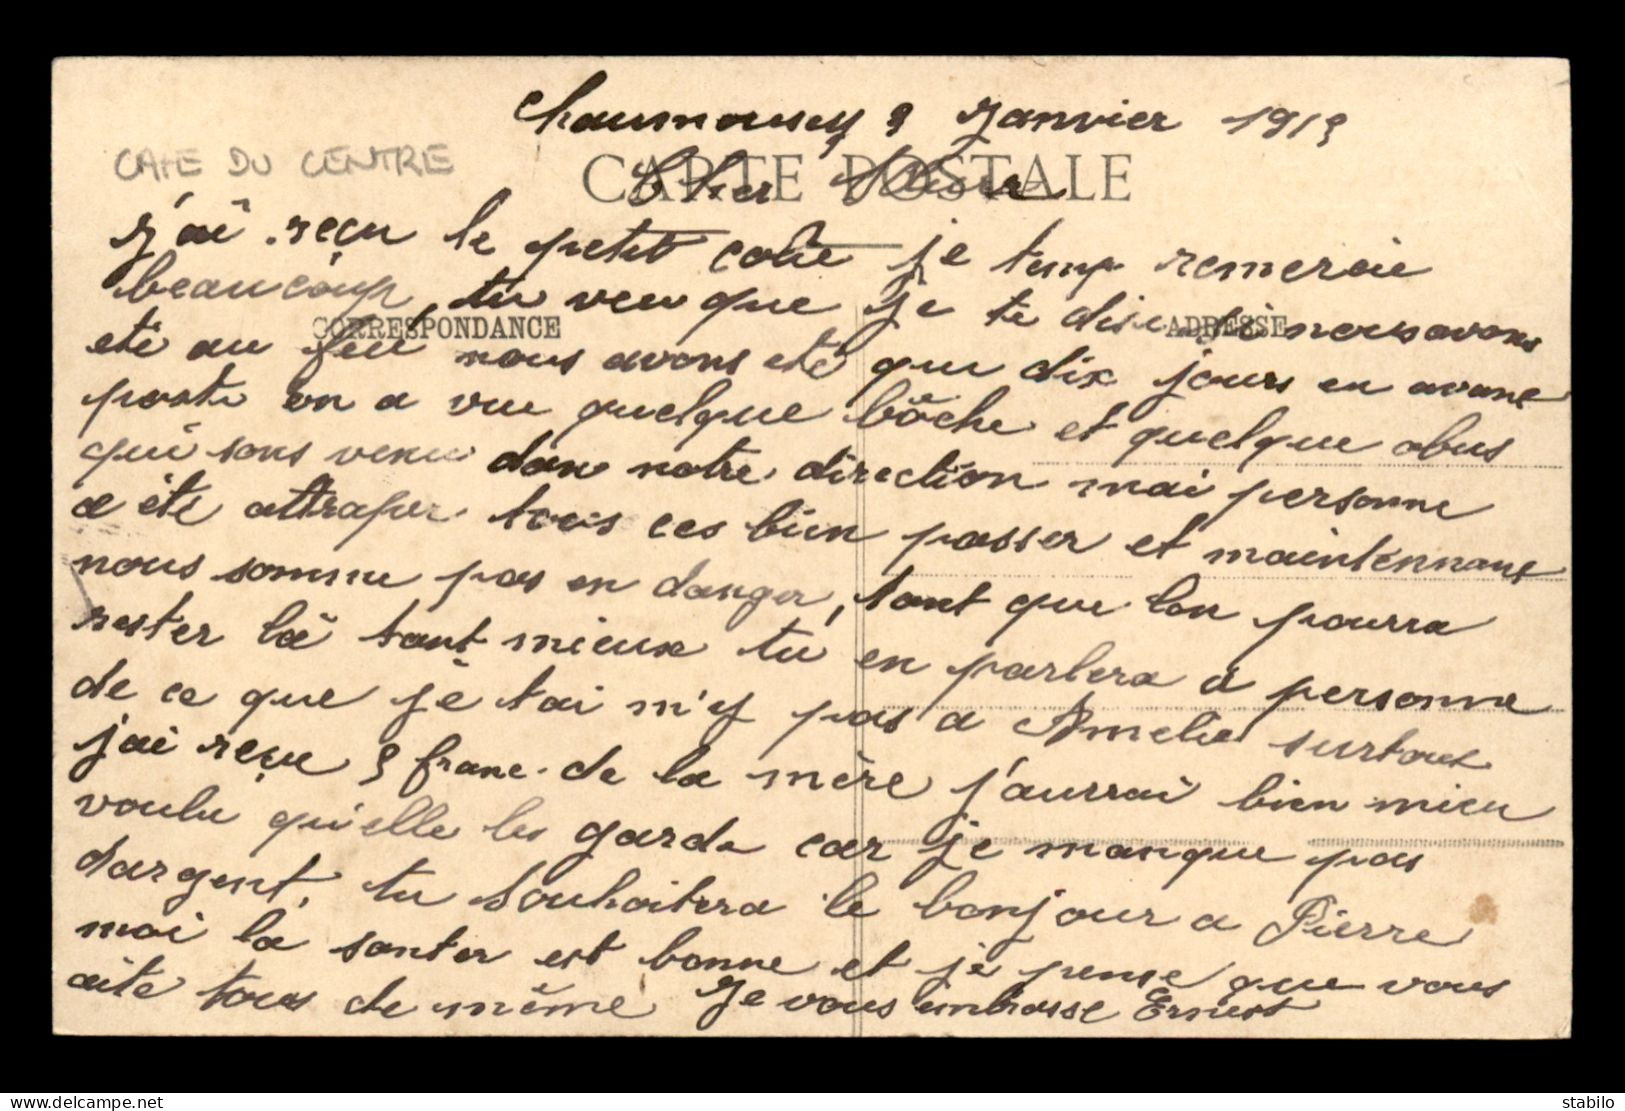 Chaumousey 9 Janvier 1915
CAFE DU CENTRE
CARTE POSTALE
Cher
J'ai reçu le petit colie je temp remercie
CORRESPONDANCE
ADRESSE
beaucoup, tu veu que je te dise si nous avons
eté au feu nous avons eté que dix jours en avant
poste on a vue quelque bôche et quelque obus
qui sons venu dan notre direction mai personne
a été attraper tous ces bien passer et maintennant
nous somme pas en danger, tant que lon pourra
rester là tant mieux tu en parlera a personne
de ce que je tai m'y pas a Amelie surtout
jai reçu 5 franc de la mère j'aurrai bien mieu
voulu qu'elle les garde car je manque pas
dargent, tu souhaitera le bonjour a Pierre
moi la santer est bonne et je pense que vous
aite tous de même Je vous embrasse Ernest
stabilo